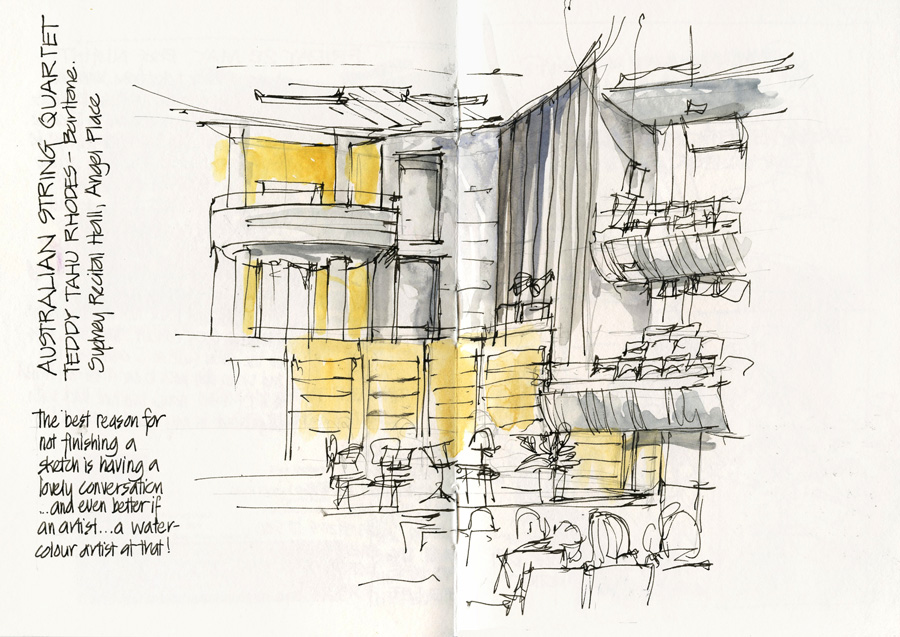 AUSTRALIAN STRING QUARTET
TEDDY TAHU RHODES - Baritone.
Sydney Recital Hall, Angel Place
The best reason for
not finishing a
sketch is having a
lovely conversation
...and even better if
an artist...a water-
colour artist at that!